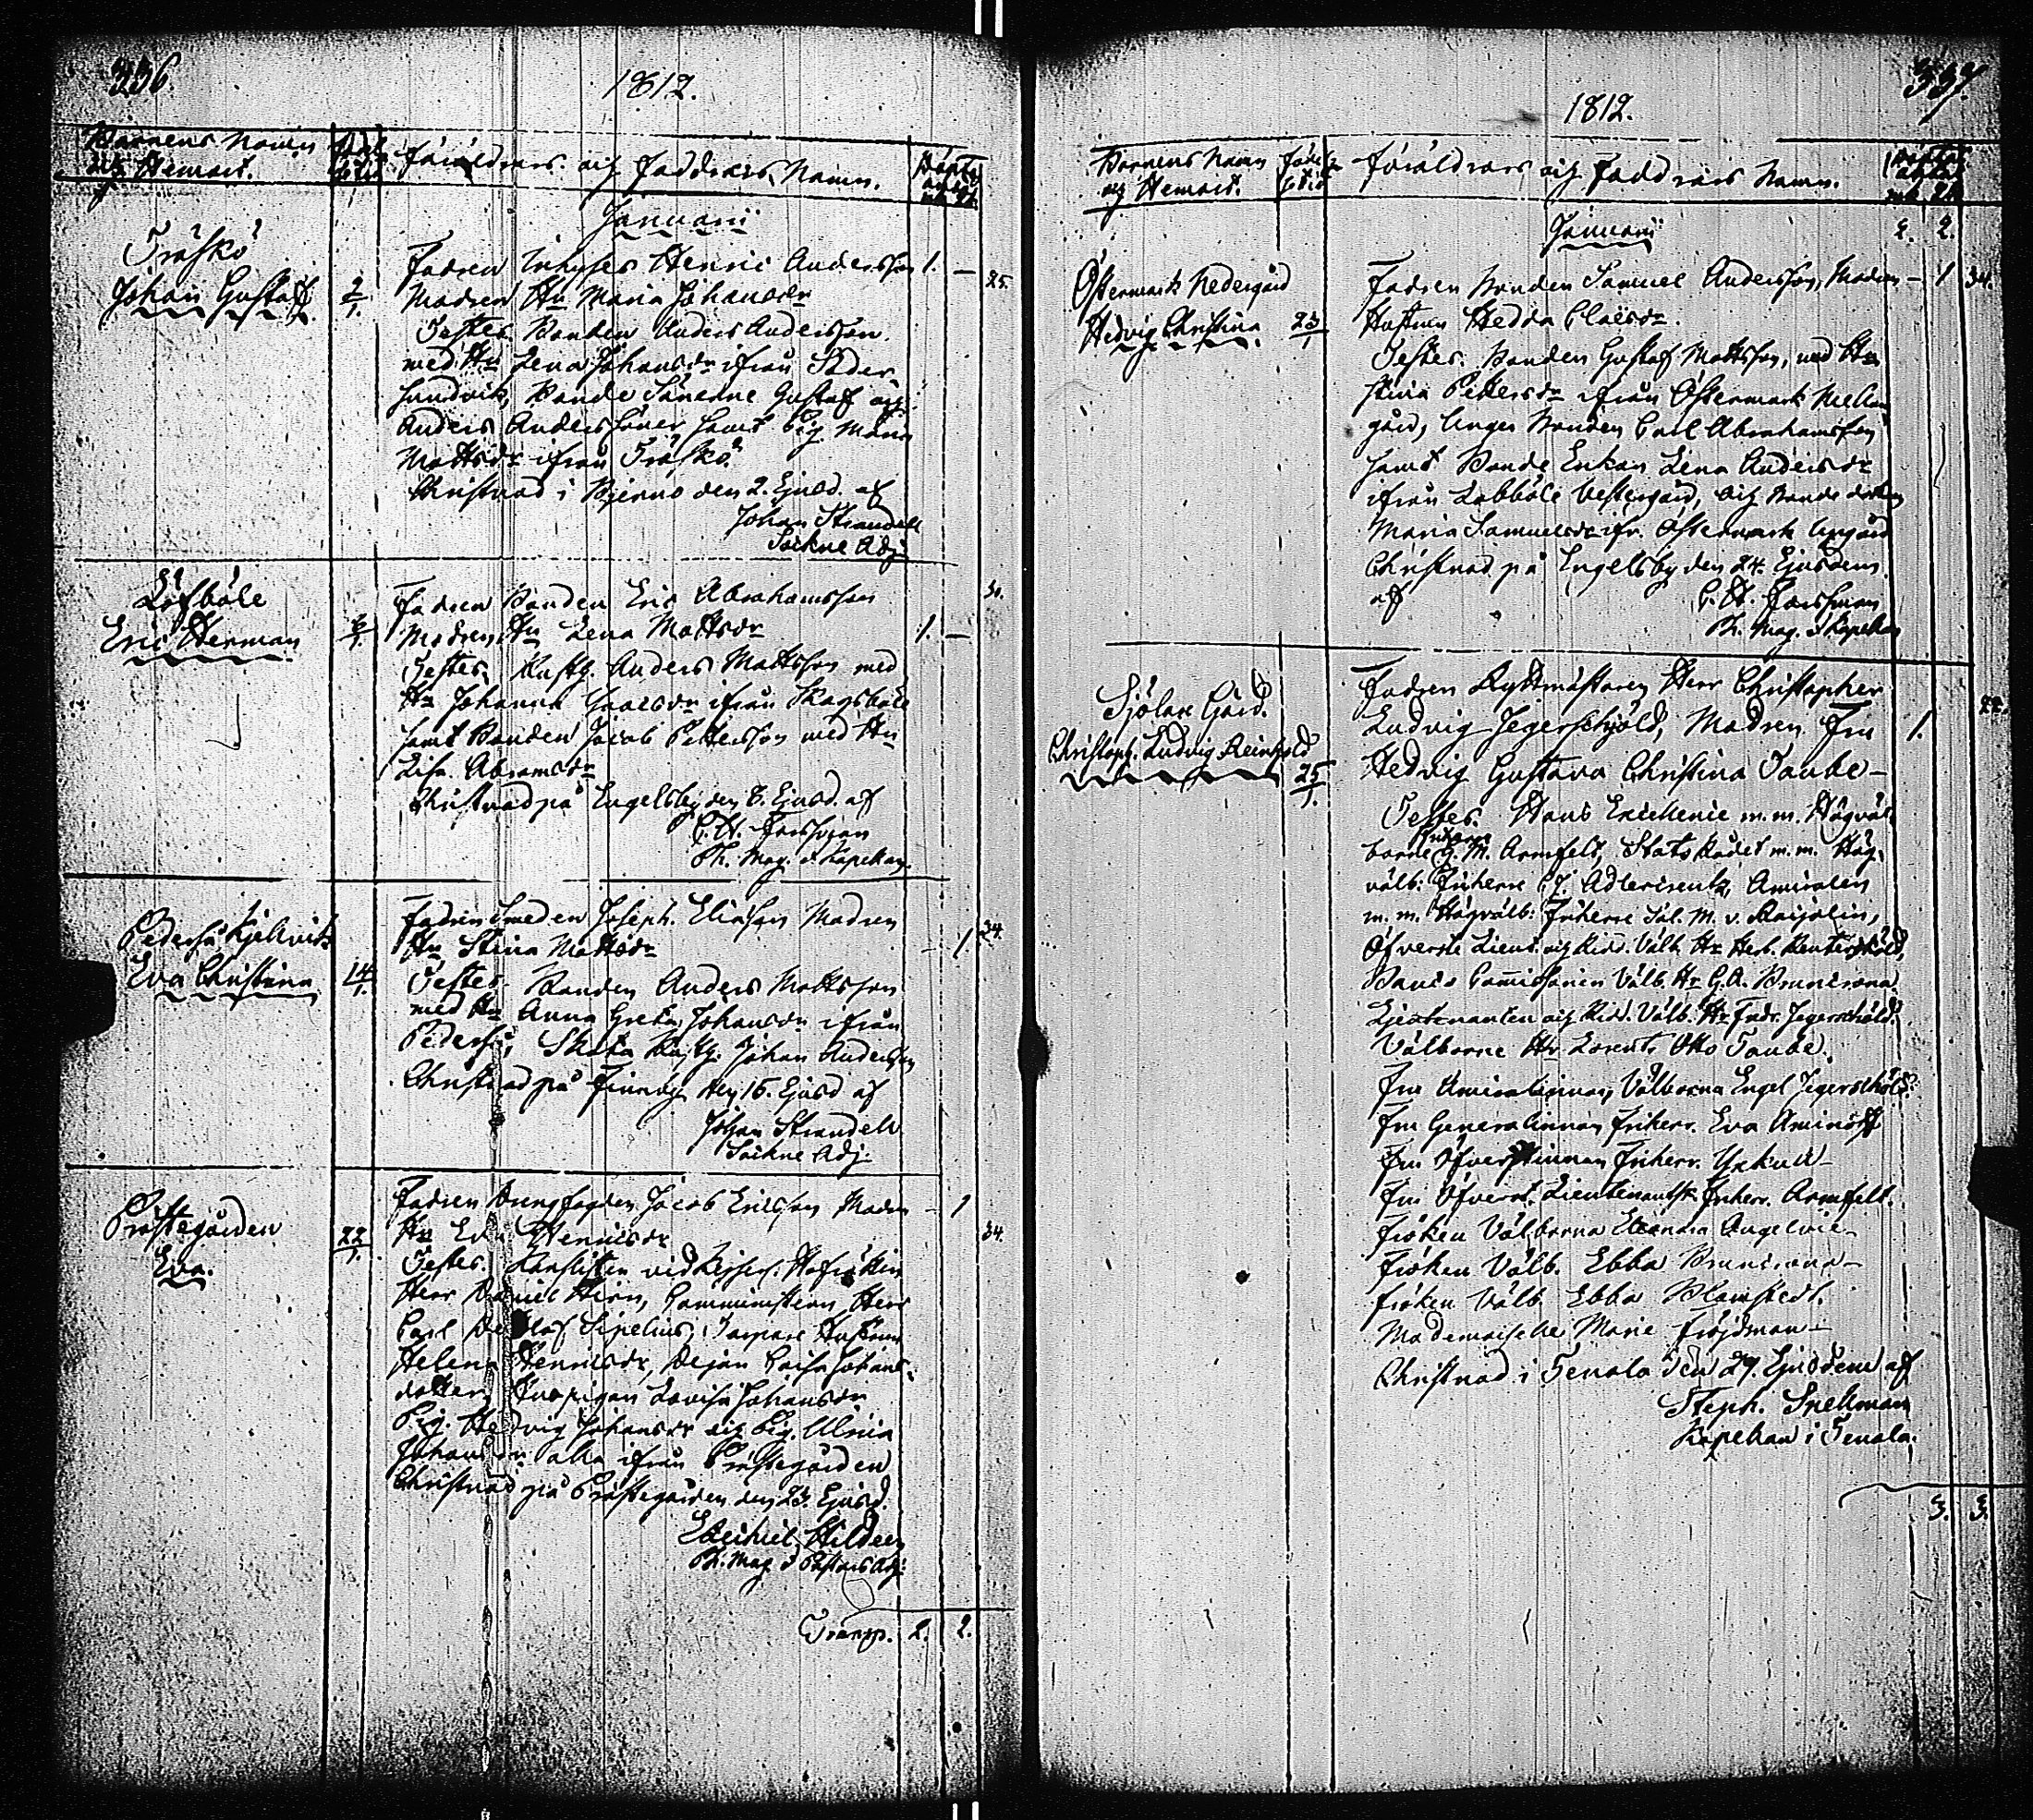 336.
1812.
Barnens Namn
och Hemort.
Föräldrars och Faddrars Namn.
Januarii
Träskö
Johan Gustaff
2/1.
Fadren Inhyses Henric Andersson 1. —
25.
Madren Hu Maria Johansdr
Testes. Bonden Anders Andersson
med Hu Lena Johansdr ifrån Söder
sundvik, Bonde Sönerne Gustaf och
Anders Anderssöner samt Pig. Maria
Mattsdr ifrån Träskö.
Christnad i Bjerno den 2. Ejusd. af
Johan Strandell
Sockne Adj.
Löfböle
Eric Herman
Fadren Bonden Eric Abrahamsson
Madren Hu Lena Mattsdr 1. —
Testes. Rusth. Anders Mattsson med
Hu Johanna Isacsdr ifrån Skogsböle
samt Bonden Jacob Pettersson med Hu
Lisa Abramsdr
Christnad på Engelsby den 8. Ejusd. af
C. H. Forssman
Ph. Mag. & Kapellan.
Pederså Kjellvik
Eva Christina
14/1.
Fadren Smeden Joseph Eliasson Madren
34.
Hu Stina Mattsdr - 1.
Testes. Bonden Anders Mattsson
med Hu Anna Greta Johansdr ifrån
Pederså, Skata Rusth. Johan Andersson
Christnad på Finnby den 16. Ejusd af
Johan Strandell
Sockne Adj.
Prästegården
Eva.
22/1.
Fadren Jacob Ericsson Madren - 1
34.
Hu Eva Henricsdr
Testes. Kanslisten vid Kejserl. Hofrätten
Herr Daniel Hirn, Comministern Herr
Carl Sipelius, Hustrun
Helena Henricsdr, Dejan Caisa Johans-
dotter, Lovisa Johansdr
Pig. Hedvig Johansdr och Pig. Maria
Johansdr alla ifrån Prästegården
Christnad på Prästegården den 23. Ejusd.
Ezechiel Hildeen
Ph. Mag. & Pastors Adj.
Transp. 2. 2.
337.
1812.
Barnens Namn
och Hemort.
Föräldrars och Faddrars Namn.
Januarii
2. 2.
Östermark Nedergård
Hedvig Christina
23/1
Fadren Bonden Samuel Andersson, Madren - 1 34.
Hustrun Hedda Claesdr.
Testes. Bonden Gustaf Mattsson, med Hu
Stina Pettersdr ifrån Östermark Mellan
gård, Unger Bonden Carl Abrahamsson
samt Bonde Enkan Lena Andersdr
ifrån Labböle Vestergård, och Bonde dottern
Maria Samuelsdr ifr. Östermark Uppgård
Christnad på Engelsby den 24. Ejusdem
af C. H. Forssman
Ph. Mag. & Kapellan
Sjölax Gård.
Christoph. Ludvig Reinhold
25/1.
Fadren Ryttmästaren Herr Christopher
Ludvig Jegerschjöld, Madren Fru 1.
Hedvig Gustava Christina Taube —
Testes. Hans Excellence m. m. Högväl-
borne Friherre G. M. Armfelt, Stats Rådet m. m. Hög-
välb: Friherre C. J. Adlercreutz, Amiralen
m. m. Högvälb: Friherre Sal. M. v. Raijalin,
Öfverste Lieut. och Ridd. Välb. Hr Herb. Reuterskjöld,
Banco Comissarien Välb. Hr G. A. Bruncrona
Lieutenanten och Ridd. Välb. Hr Fredr. Jegerschöld.
Välborne Hr Lorentz Otto Taube.
Fru Amiralinnan Välborna Engel Jegerschöld.
Fru Generalinnan Friherr. Eva Aminoff
Fru Öfverstinnan Friherr. Yxkull —
Fru Öfverst. Lieutenantsk. Friherr. Armfelt.
Fröken Välborna Eleonora —
Fröken Välb. Ebba Bruncrona —
Fröken Välb. Ebba Blomstedt.
Mademoiselle Marie Fröjdman —
Christnad i Tenala den 29. Ejusdem af
Steph. Snellman
Kapellan i Tenala.
3. 3.